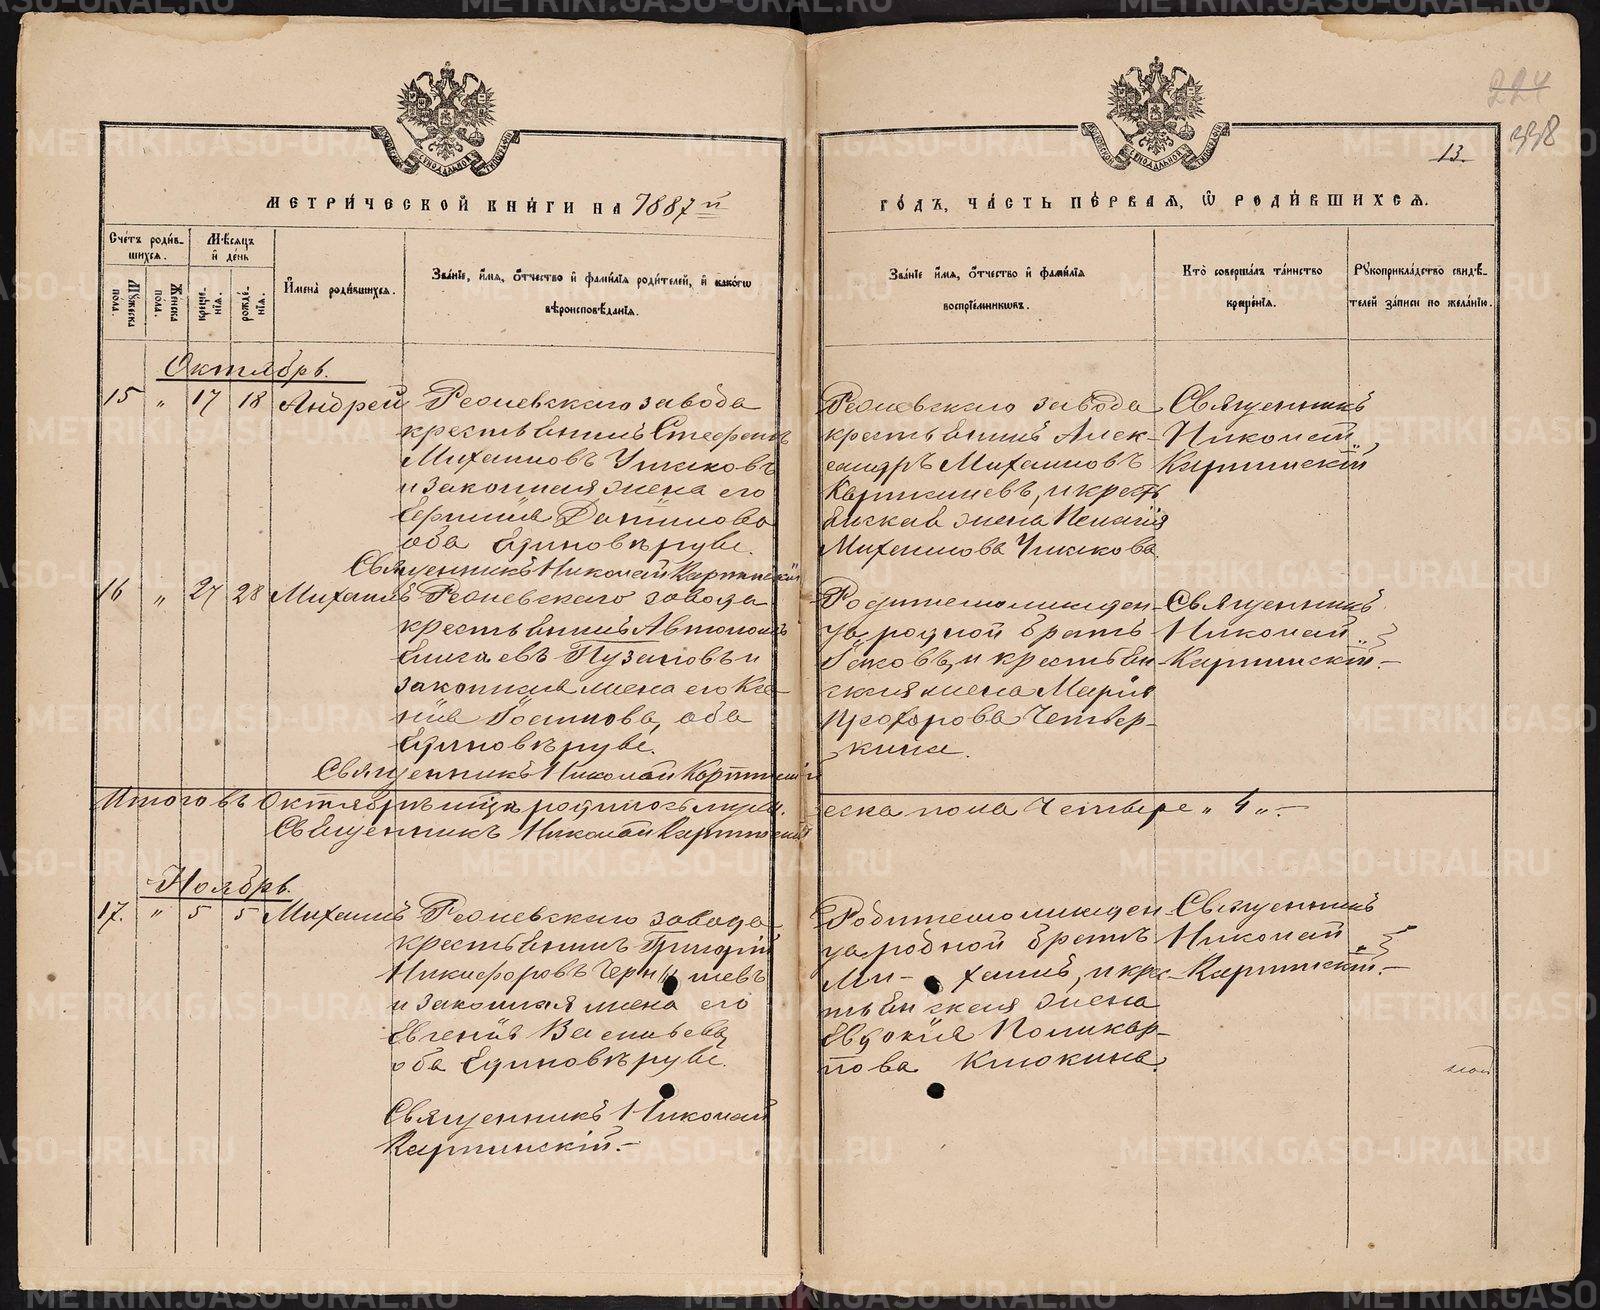 224
338
13.
МЕТРИЧЕСКОЙ КНИГИ НА 1887 й
ГОДЪ, ЧАСТЬ ПЕРВАЯ, Ѿ РОДИВШИХСЯ.
Счетъ родив-
шихся.
Мѣсяцъ
и день
Мужеска
полъ.
Женска
полъ.
креще-
нія.
рожде-
нія.
Имена родившихся.
Званіе, имя, отчество и фамилія родителей, и какогѡ
вѣроисповѣданія.
Званіе имя, отчество и фамилія
воспріемниковъ.
Кто совершалъ таинство
крещенія.
Рукоприкладство свидѣ-
телей записи по желанію.
Октябрь.
15 " 17 18 Андрей
Ревдевскаго завода
крестьянинъ Стефанъ
Михаиловъ Ушаковъ
и законная жена его
Данилова
оба Единовѣрцы.
Священникъ Николай Карпинскій
Ревдевскаго завода
крестьянинъ Алек-
сандръ Михаиловъ
и кресть
янская жена Пелагія
Михаилова Ушакова.
Священникъ
Николай
Карпинскій
16 " 27 28 Михаилъ
Ревдевскаго завода
крестьянинъ Автономъ
Елисаевъ Пузановъ и
законная жена его Ксе-
нія Іоаннова, оба
Единовѣрцы.
Священникъ Николай Карпинскій
Родителю младен-
ца родной братъ
Іаковъ, и крестьян-
ская жена Марія
Прохорова Четвер-
кина.
Священникъ
Николай
Карпинскій.-
Итого въ Октябрѣ мцѣ родилось муже-
ска пола Четверо „ 4 „.-
Священникъ Николай Карпинскій
Ноябрь.
17. " 5 5 Михаилъ
Ревдевскаго завода
крестьянинъ Григорій
Никифоровъ
и законная жена его
Евгенія Васильева,
оба Единовѣрцы.
Священникъ Николай
Карпинскій.-
Родителю младен-
ца родной братъ
Ми- хаилъ, и кре-
стьянская жена
Евдокія Поликар-
пова Клюкина.
Священникъ
Николай
Карпинскій.-
METRIKI.GASO-URAL.RU